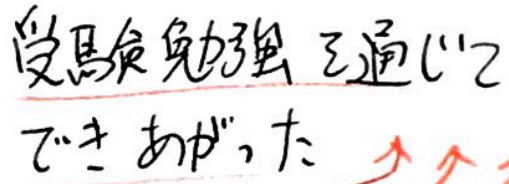 受験勉強を通じて
できあがった